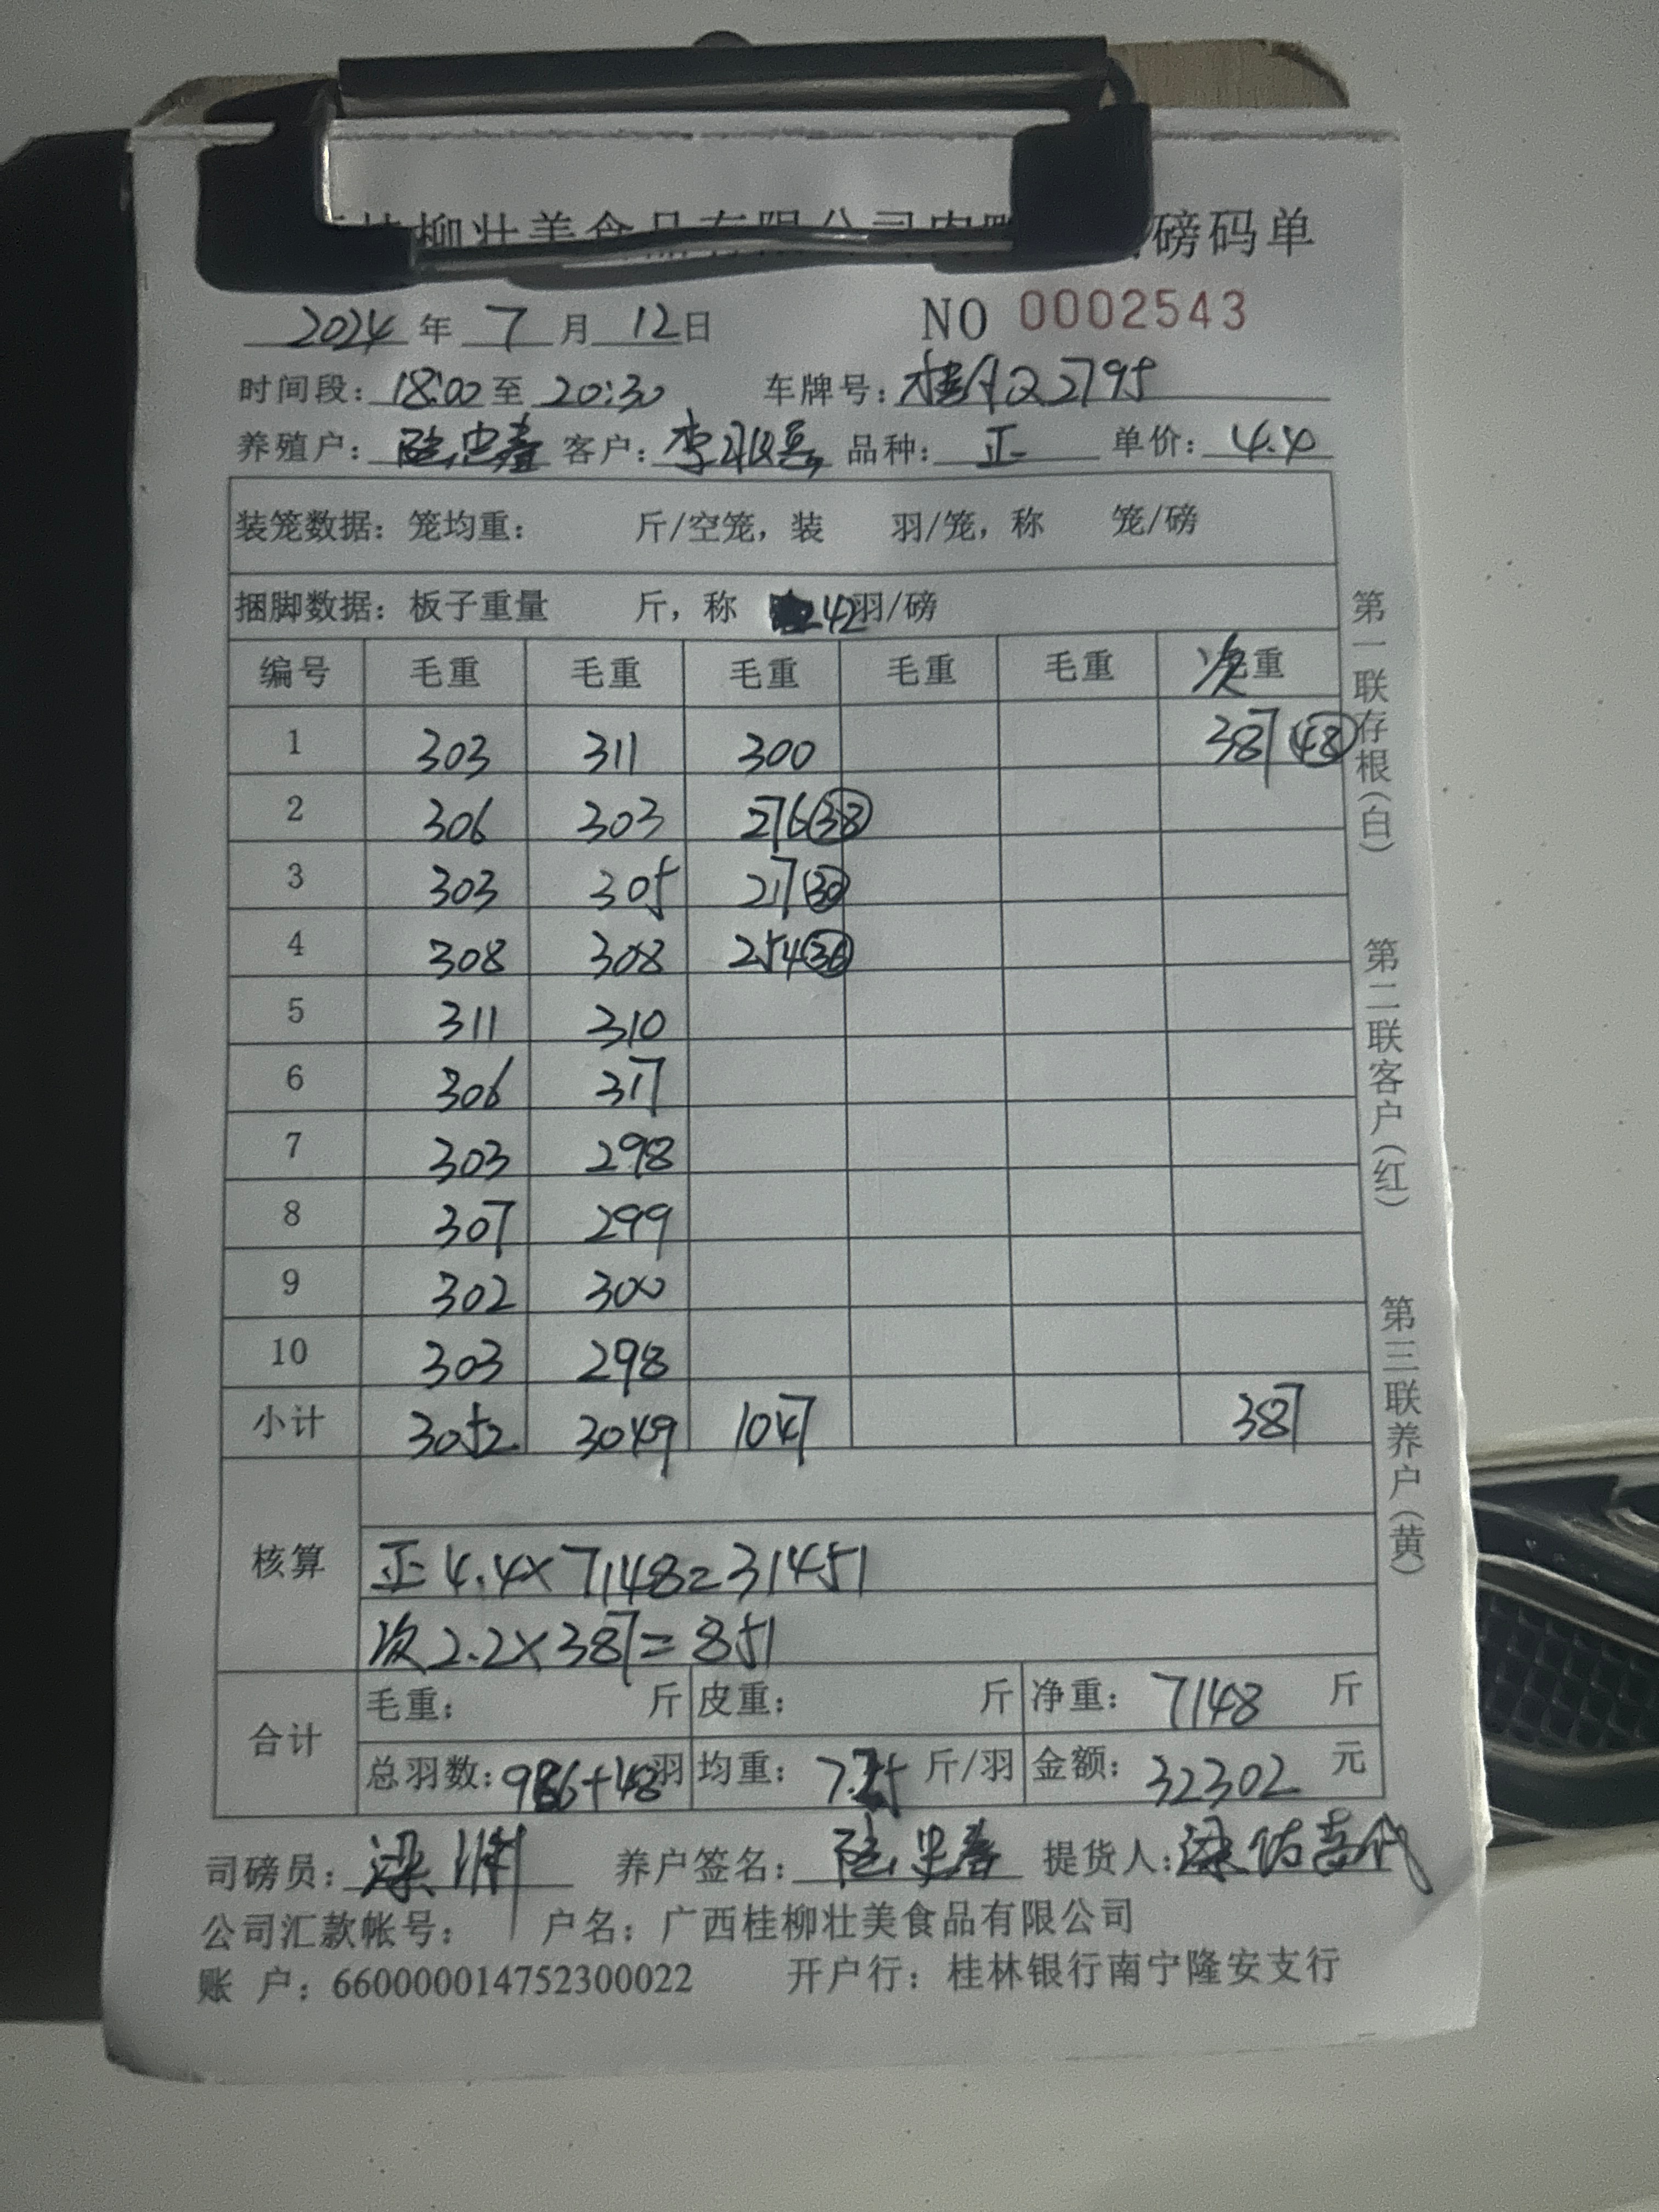 柳壮美食品有限公司肉鸭 磅码单
2024 年 7 月 12 日 NO 0002543
时间段: 18:00 至 20:30 车牌号: 桂A Q2795
养殖户: 陆忠春 客户: 李 品种: 正 单价: 4.4
装笼数据: 笼均重: 斤/空笼, 装 羽/笼, 称 笼/磅
捆脚数据: 板子重量 斤, 称 42 羽/磅
编号 毛重 毛重 毛重 毛重 毛重 次 重
1 303 311 300 387 48
2 306 303 276 38
3 303 305 217 30
4 308 308 254 36
5 311 310
6 306 317
7 303 298
8 307 299
9 302 300
10 303 298
小计 3052 3049 1047 387
核算
正 4.4×7148=31451
次 2.2×387=851
合计
毛重: 斤 皮重: 斤 净重: 7148 斤
总羽数: 986+48 羽 均重: 7.25 斤/羽 金额: 32302 元
司磅员: 梁 养户签名: 陆忠春 提货人: 代
公司汇款帐号: 户名: 广西桂柳壮美食品有限公司
账 户: 660000014752300022 开户行: 桂林银行南宁隆安支行
第一联存根(白) 第二联客户(红) 第三联养户(黄)